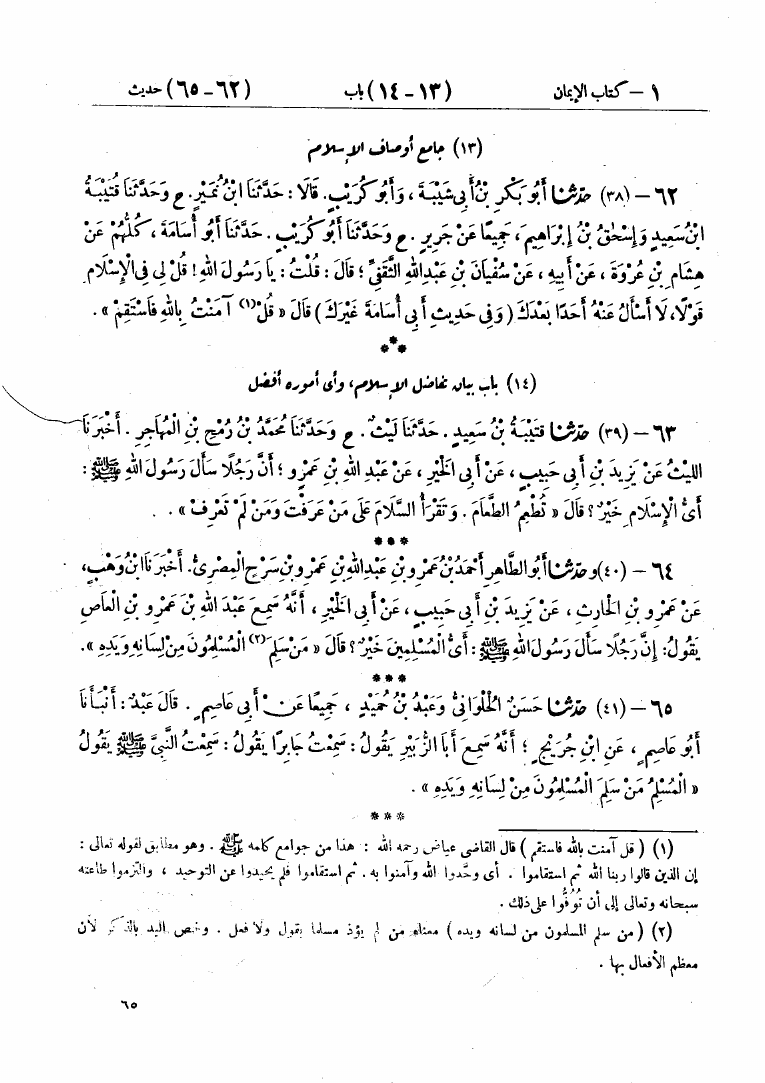 ١ – كتاب الإيمان (١٣-١٤) باب (٦٢-٦٥) حديث
(١٣) جامع أوصاف الإسلام
٦٢ – (٣٨) حَدَّثَنَا أَبُو بَكْرِ بْنُ أَبِي شَيْبَةَ ، وَأَبُو كُرَيْبٍ. قَالَا : حَدَّثَنَا ابْنُ نُمَيْرٍ. ح وَحَدَّثَنَا قُتَيْبَةُ
ابْنُ سَعِيدٍ وَإِسْحَقُ بْنُ إِبْرَاهِيمَ، جَمِيعًا عَنْ جَرِيرٍ. ح وَحَدَّثَنَا أَبُو كُرَيْبٍ. حَدَّثَنَا أَبُو أُسَامَةَ ، كُلُّهُمْ عَنْ
هِشَامِ بْنِ عُرْوَةَ ، عَنْ أَبِيهِ ، عَنْ سُفْيَانَ بْنِ عَبْدِ اللهِ الثَّقَفِيِّ ؛ قَالَ : قُلْتُ : يَا رَسُولَ اللهِ ! قُلْ لِي فِي الْإِسْلَامِ
قَوْلًا، لَا أَسْأَلُ عَنْهُ أَحَدًا بَعْدَكَ (وَفِي حَدِيثِ أَبِي أُسَامَةَ غَيْرَكَ) قَالَ « قُلْ (١) آمَنْتُ بِاللهِ فَاسْتَقِمْ » .
***
(١٤) باب بيان تفاضل الإسلام، وأى أموره أفضل
٦٣ – (٣٩) حَدَّثَنَا قُتَيْبَةُ بْنُ سَعِيدٍ . حَدَّثَنَا لَيْثٌ . ح وَحَدَّثَنَا مُحَمَّدُ بْنُ رُمْحِ بْنِ الْمُهَاجِرِ . أَخْبَرَنَا
اللَّيْثُ عَنْ يَزِيدَ بْنِ أَبِي حَبِيبٍ ، عَنْ أَبِي الْخَيْرِ ، عَنْ عَبْدِ اللهِ بْنِ عَمْرٍو ؛ أَنَّ رَجُلًا سَأَلَ رَسُولَ اللهِ ﷺ :
أَيُّ الْإِسْلَامِ خَيْرٌ ؟ قَالَ « تُطْعِمُ الطَّعَامَ . وَتَقْرَأُ السَّلَامَ عَلَى مَنْ عَرَفْتَ وَمَنْ لَمْ تَعْرِفْ » .
***
٦٤ – (٤٠) وحَدَّثَنَا أَبُو الطَّاهِرِ أَحْمَدُ بْنُ عَمْرِو بْنِ عَبْدِ اللهِ بْنِ عَمْرِو بْنِ سَرْحٍ الْمِصْرِيُّ. أَخْبَرَنَا ابْنُ وَهْبٍ،
عَنْ عَمْرِو بْنِ الْحَارِثِ ، عَنْ يَزِيدَ بْنِ أَبِي حَبِيبٍ ، عَنْ أَبِي الْخَيْرِ ، أَنَّهُ سَمِعَ عَبْدَ اللهِ بْنَ عَمْرِو بْنِ الْعَاصِ
يَقُولُ: إِنَّ رَجُلًا سَأَلَ رَسُولَ اللهِ ﷺ : أَيُّ الْمُسْلِمِينَ خَيْرٌ ؟ قَالَ « مَنْ سَلِمَ (٢) الْمُسْلِمُونَ مِنْ لِسَانِهِ وَيَدِهِ ».
***
٦٥ – (٤١) حَدَّثَنَا حَسَنٌ الْحُلْوَانِيُّ وَعَبْدُ بْنُ حُمَيْدٍ ، جَمِيعًا عَنْ أَبِي عَاصِمٍ . قَالَ عَبْدٌ : أَنْبَأَنَا
أَبُو عَاصِمٍ ، عَنِ ابْنِ جُرَيْجٍ ؛ أَنَّهُ سَمِعَ أَبَا الزُّبَيْرِ يَقُولُ : سَمِعْتُ جَابِرًا يَقُولُ : سَمِعْتُ النَّبِيَّ ﷺ يَقُولُ
« الْمُسْلِمُ مَنْ سَلِمَ الْمُسْلِمُونَ مِنْ لِسَانِهِ وَيَدِهِ » .
***
(١) ( قل آمنت بالله فاستقم ) قال القاضى عياض رحمه الله : هذا من جوامع كلمه ﷺ . وهو مطابق لقوله تعالى :
إن الذين قالوا ربنا الله ثم استقاموا . أى وحَّدوا الله وآمنوا به . ثم استقاموا فلم يحيدوا عن التوحيد ، والتزموا طاعته
سبحانه وتعالى إلى أن تُوُفُّوا على ذلك .
(٢) ( من سلم المسلمون من لسانه ويده ) معناه من لم يؤذ مسلما بقول ولا فعل . وخص اليد بالذكر لأن
معظم الأفعال بها .
٦٥